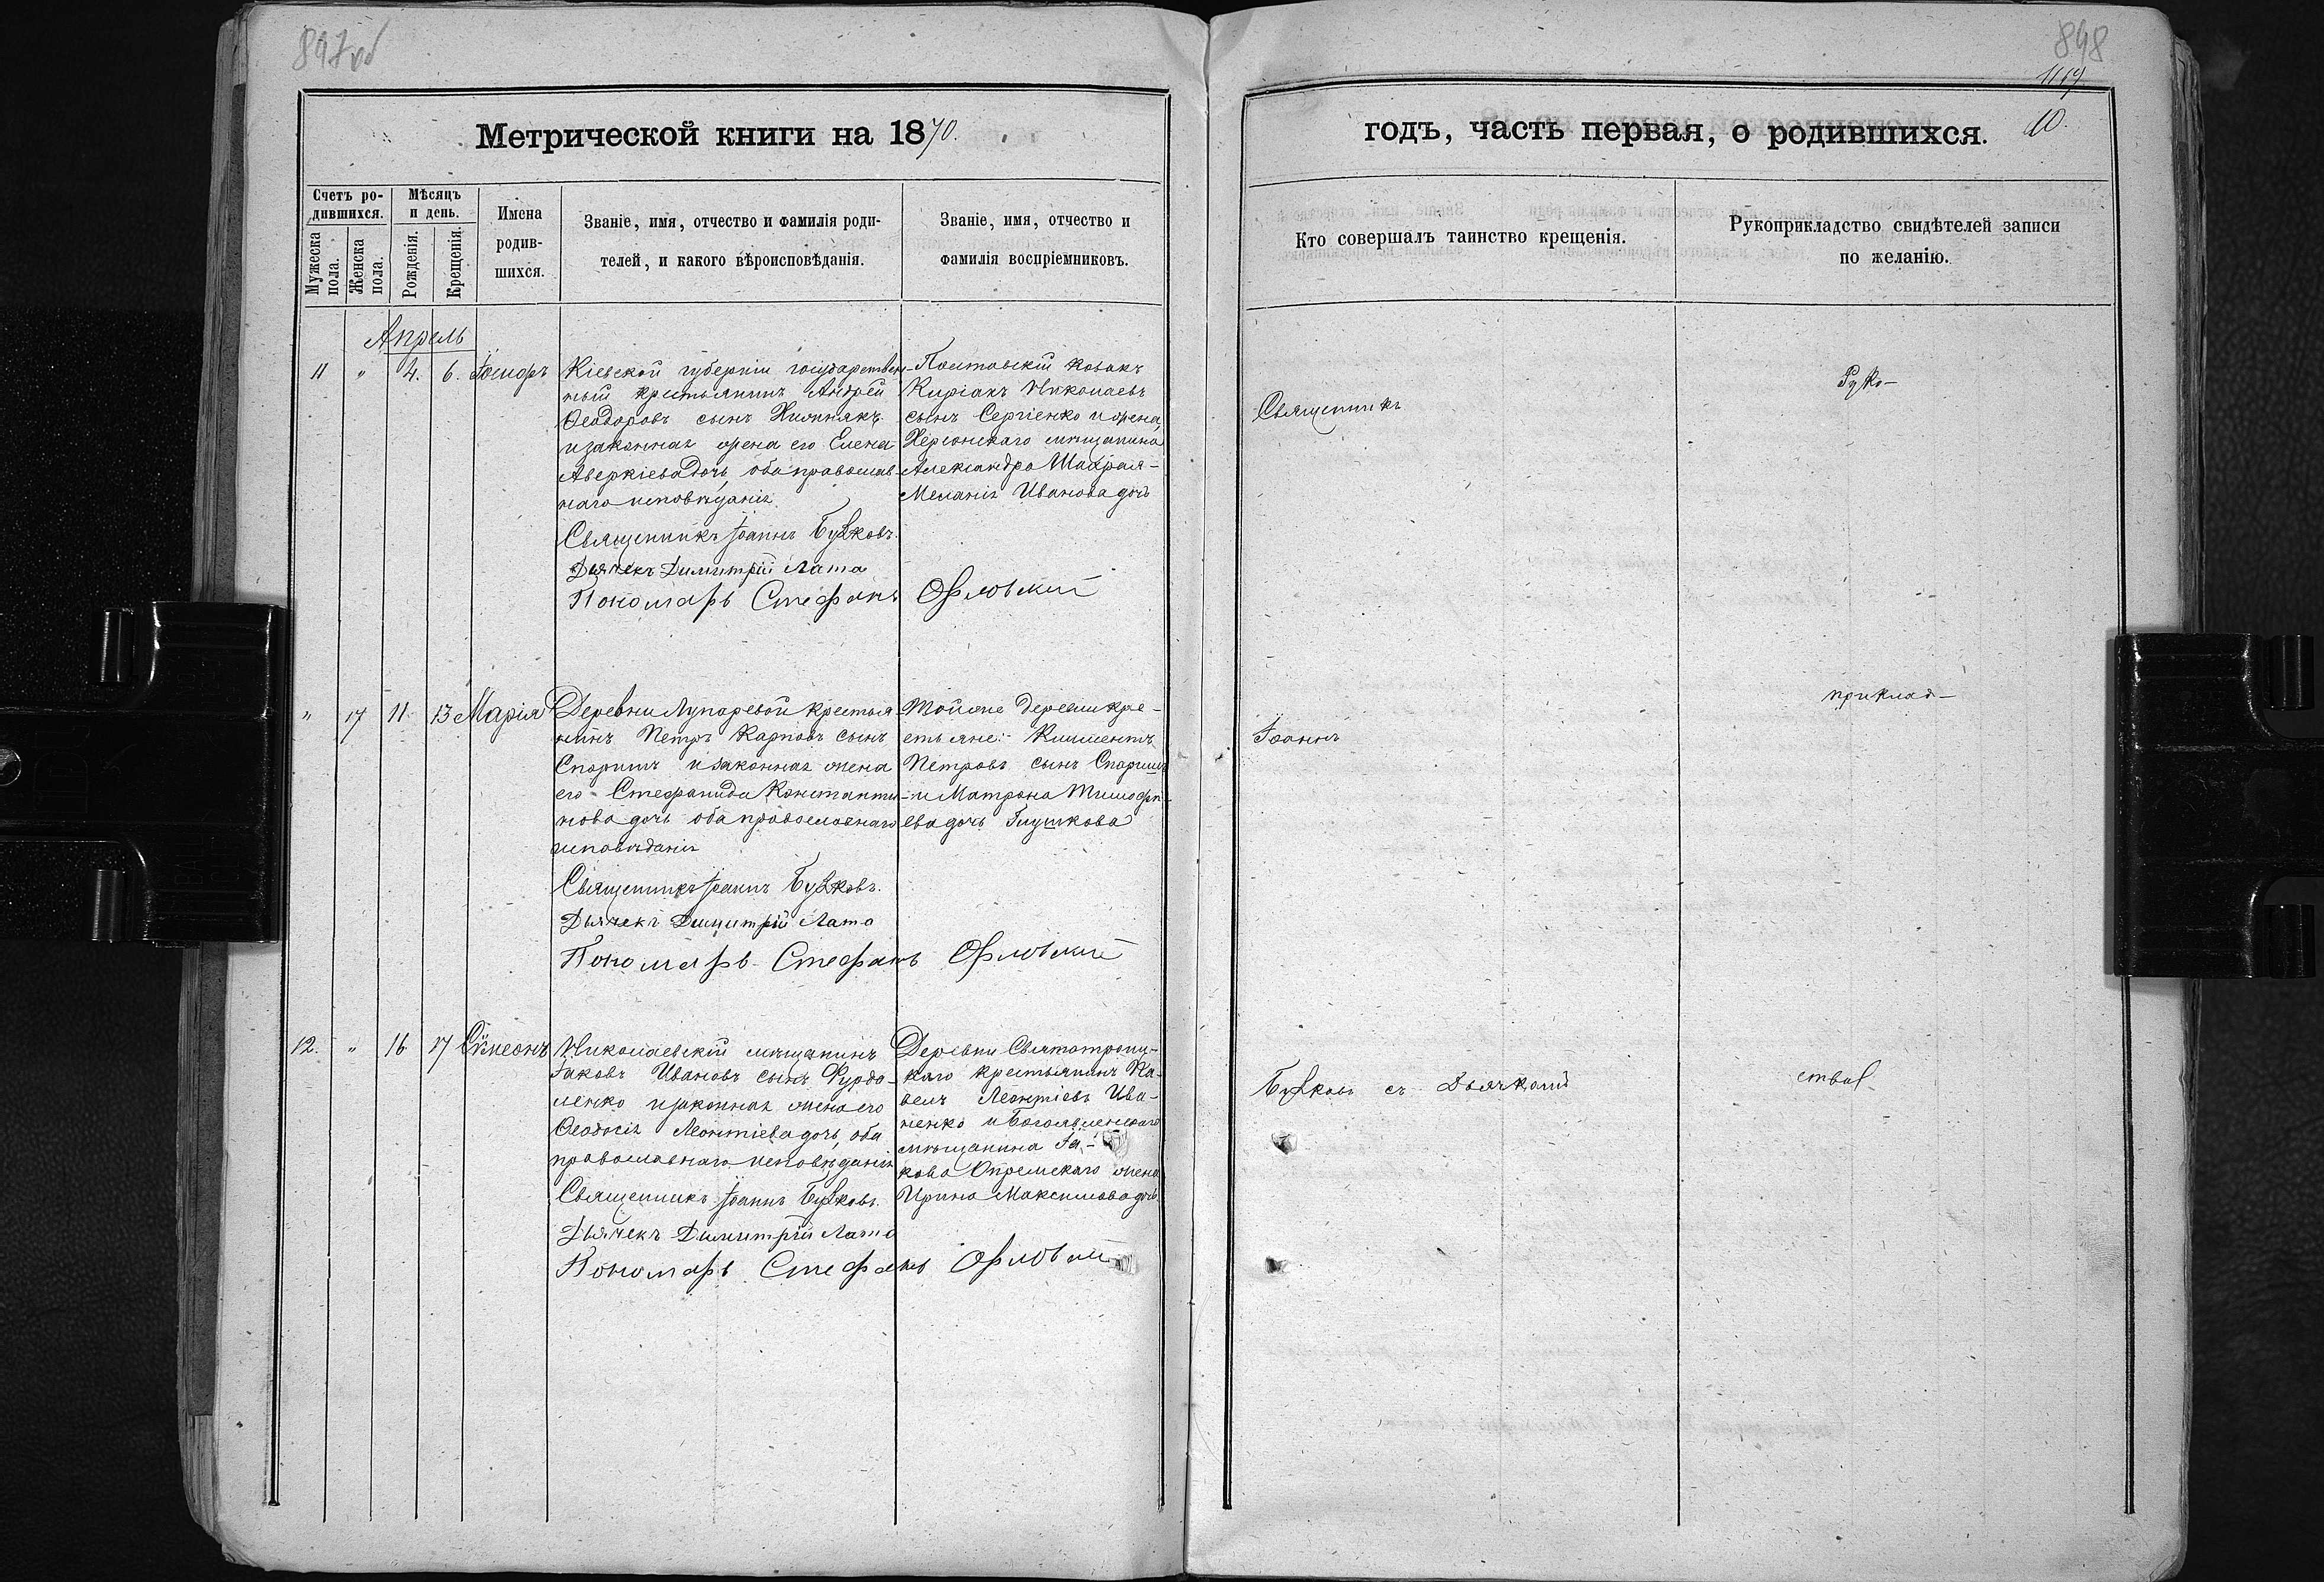 897об
898
1119
10.
Метрической книги на 1870.
годъ, часть первая, о родившихся.
Счетъ ро-
дившихся.
Мужеска пола.
Женска пола.
Мѣсяцъ
и день.
Рожденія.
Крещенія.
Имена
родив-
шихся.
Званіе, имя, отчество и фамилія роди-
телей, и какого вѣроисповѣданія.
Званіе, имя, отчество и
фамилія воспріемниковъ.
Кто совершалъ таинство крещенія.
Рукоприкладство свидѣтелей записи
по желанію.
Апрель
11 " 4. 6. Іосифъ
Кіевской губерніи государствен-
ный крестьянинъ Андрей
Ѳеодоровъ сынъ
и законная жена его Елена
Аверкіева дочь, оба православ-
наго исповѣданія
Священникъ Іоаннъ
Дьячекъ Димитрій Лата
Пономарь Стефанъ Орловскій
Полтавскій козакъ
Киріакъ Николаевъ
сынъ Сергіенко и жена
Херсонскаго мѣщанина
Александра
Меланія Иванова дочь
Священникъ
Руко-
" 17 11 13 Марія
Деревни Лупаревой крестья-
нинъ Петръ Карповъ сынъ
Спориш и законная жена
его Стефанида Константи-
нова дочь оба православнаго
исповѣданія
Священникъ Іоаннъ
Дьячекъ Димитрій Лата
Пономарь Стефанъ Орловскій
Той же деревни кре-
стьяне: Климентъ
Петровъ сынъ Спориш
и Матрона Тимофѣ-
ева дочь Глушкова
Іоаннъ
приклад-
12. " 16 17 Сѵмеонъ
Николаевскій мѣщанинъ
Іаковъ Ивановъ сынъ
и законная жена его
Ѳеодосія Леонтіева дочь, оба
православнаго исповѣданія
Священникъ Іоаннъ
Дьячекъ Димитрій Лата
Пономарь Стефанъ Орловскій
Деревни Святотроиц-
каго крестьянинъ Па-
велъ Леонтіевъ Ива-
ненко и Богоявленскаго
мѣщанина Іа-
кова жена
Ирина Максимова дочь
съ Дьячкомъ
ство